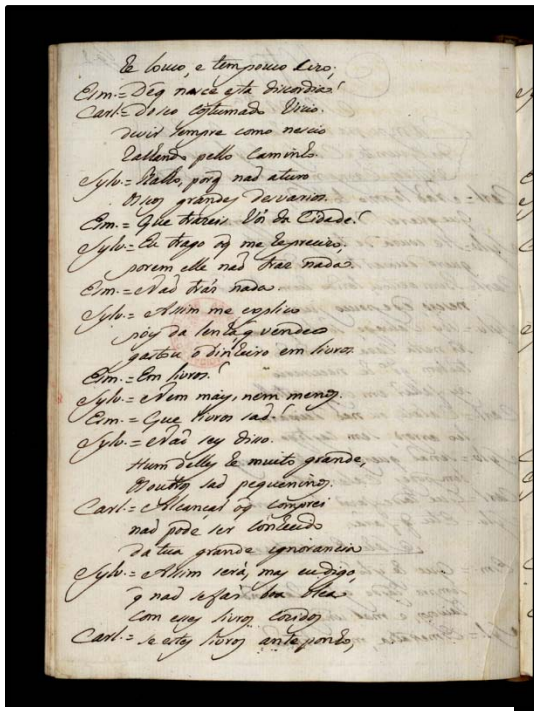 he louco, e tem pouco sizo;
Esm.= De q nasce esta discordia?
Carl.= Do seo costumado vicio.
de vir sempre como nescio
Ralhando pello caminho.
Sylv.= Ralho, porq naõ aturo
os seos grandes desvarios.
Esm.= Que trazeis vós da Cidade?
Sylv.= Eu trago oq me he precizo,
porem elle naõ traz nada.
Esm.= Naõ tráz nada?
Sylv.= Assim me explico
pòis da lenha, q vendeo
gastou o dinheiro em livros.
Esm.= Em livros?
Sylv.= Nem mais, nem menos.
Esm.= Que livros saõ?
Sylv.= Naõ sey disso.
Hum delles he muito grande,
os outros saõ pequeninos.
Carl.= Alcançar oq comprei
naõ pode ser conteudo
da tua grande ignorancia
Sylv.= Assim será, mas eu digo,
q naõ se faz boa olea
com esses livros cozidos
Carl.= se estes livros anteponho,